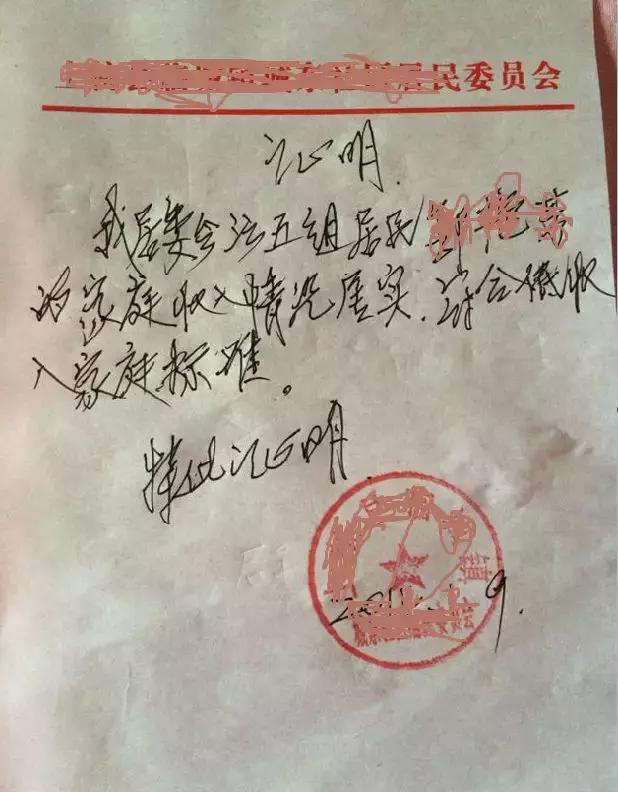 居民委员会
证明
我居委会法五组居民
的家庭收入情况属实.符合低收
入家庭标准。
特此证明
镇
9.